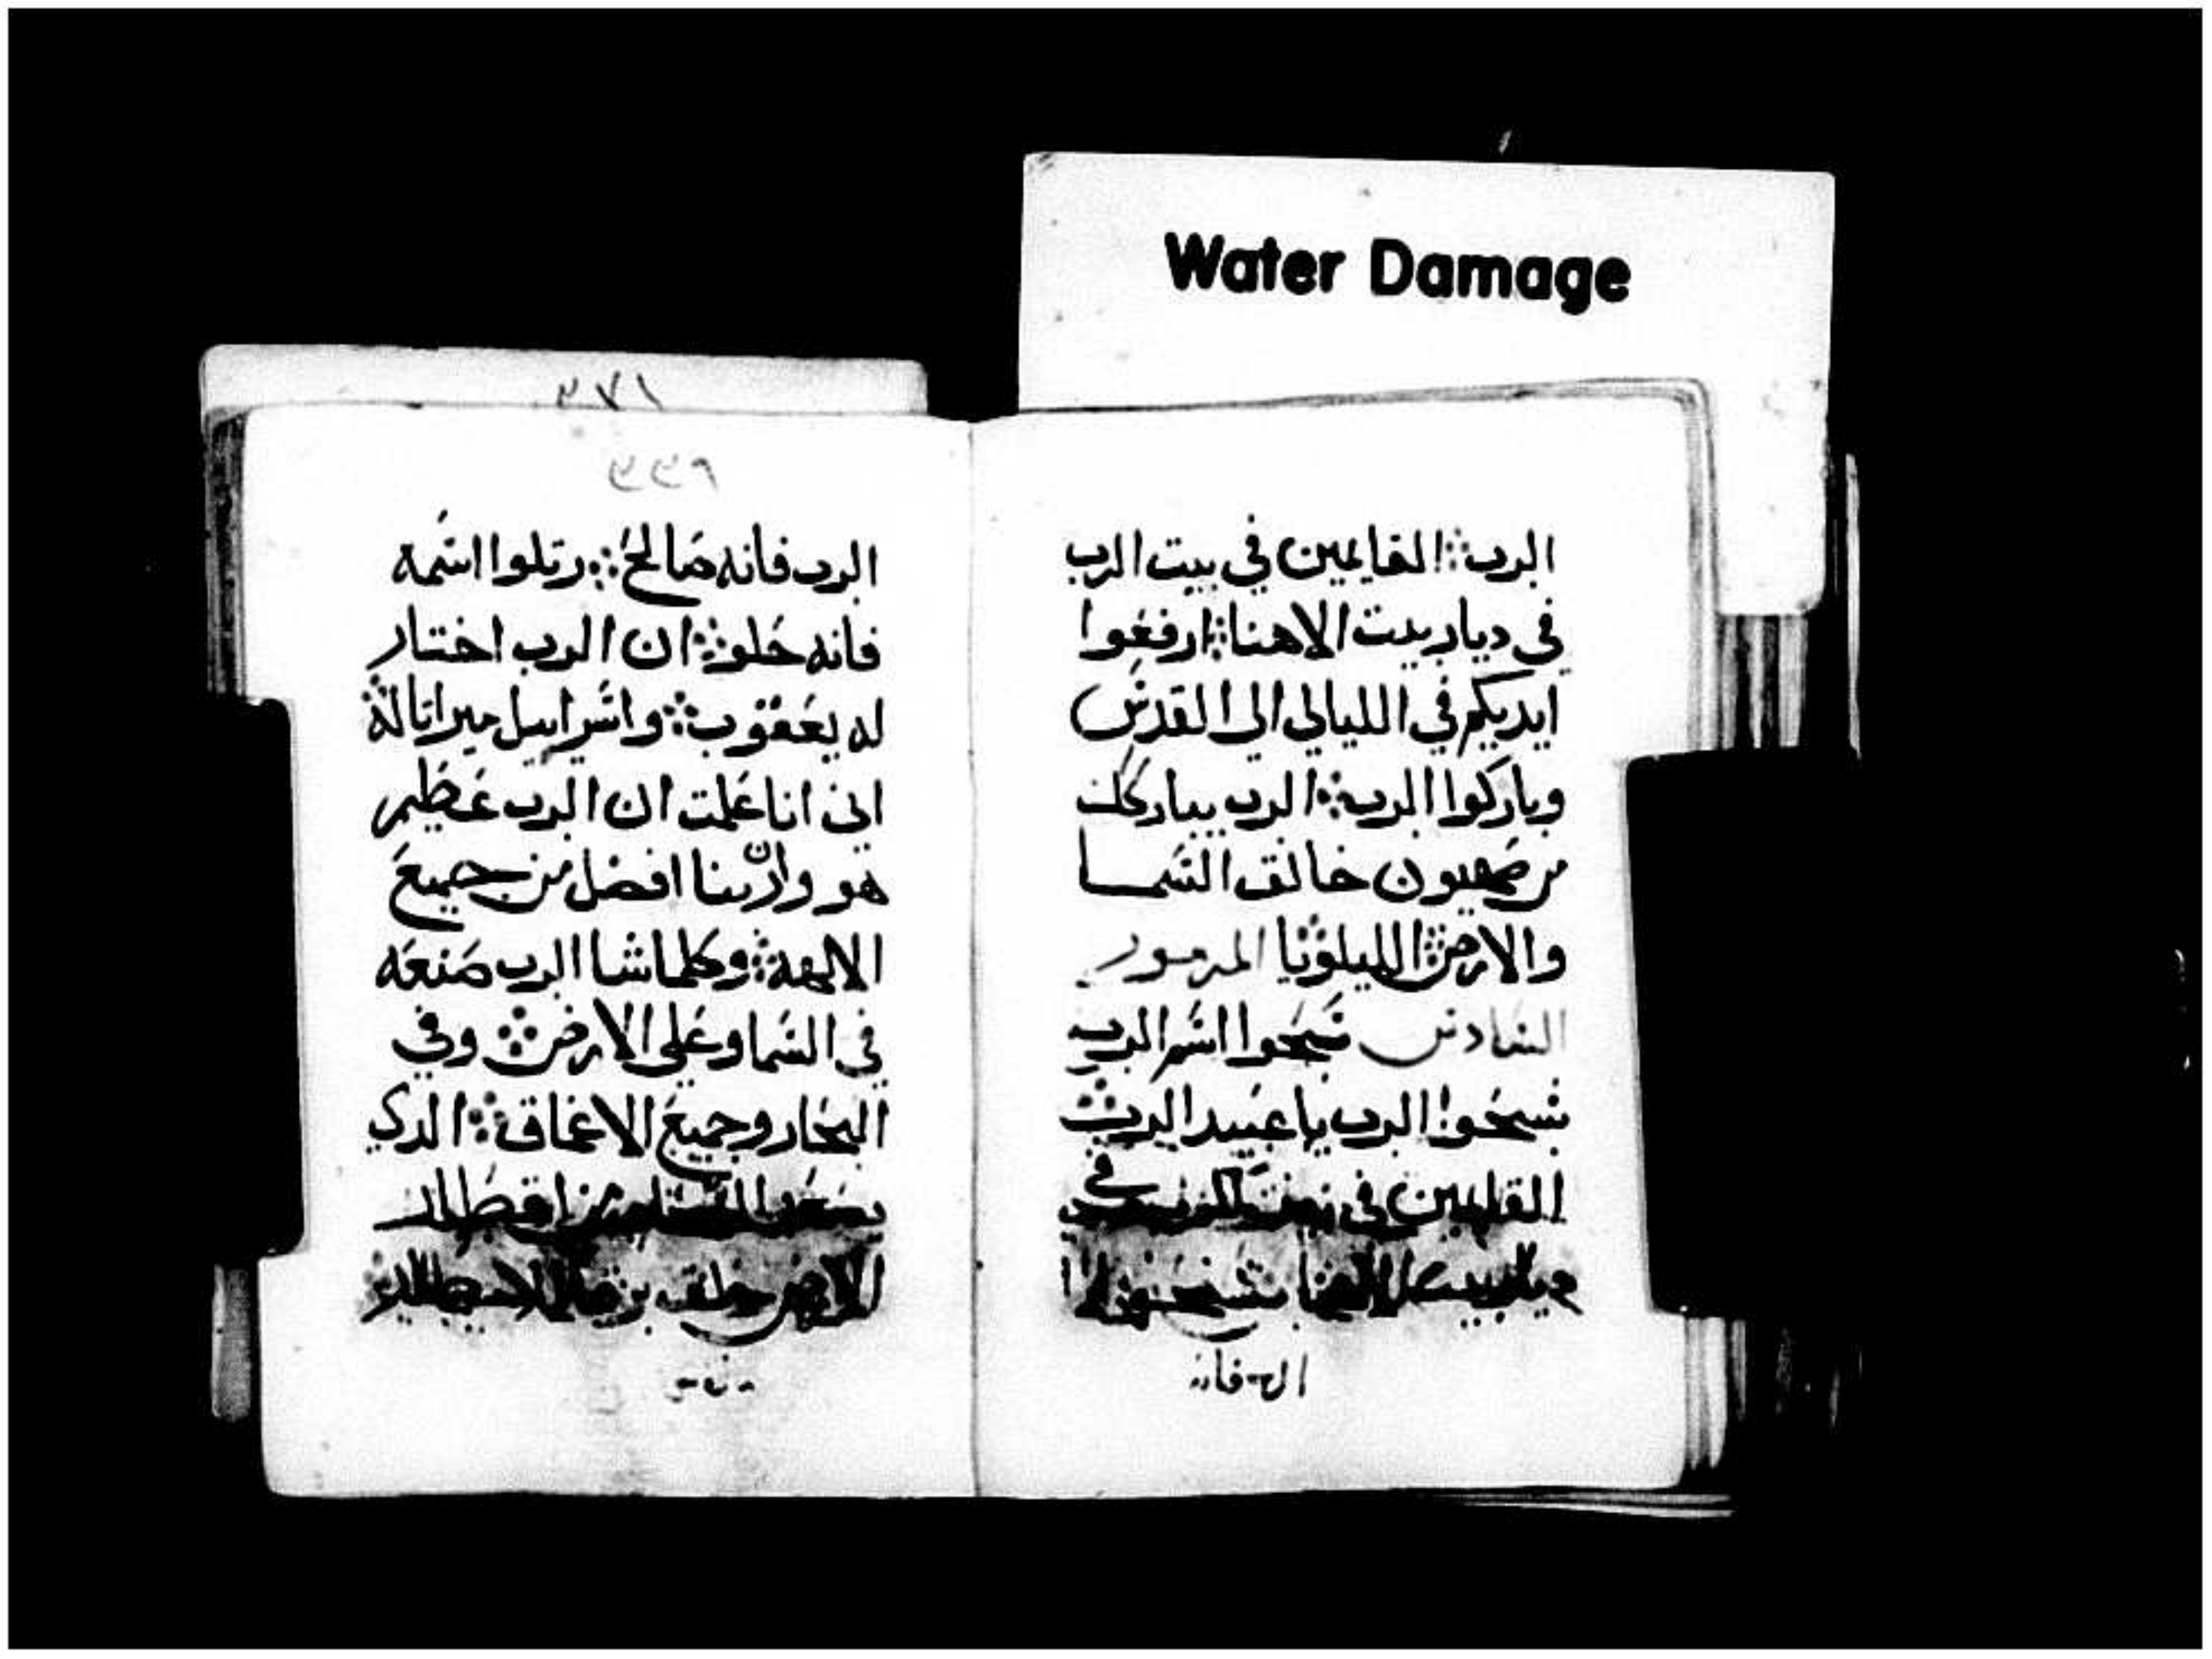 Water Damage
الرب܀ القايمين في بيت الرب
في ديار بيت الاهنا܀ ارفعوا
ايديكم في الليالي الي القدس
وباركوا الرب܀ الرب يباركك
من صهيون خالق السما
والارض܀ الليلويا المزمور
السادس سبحوا اسم الرب
سبحوا الرب يا عبيد الرب܀
القايمين في بيت الرب في
ديار بيت الاهنا سبحوا
٣٧١
٣٣٩
الرب فانه صالح܀ رتلوا اسمه
فانه حلو܀ ان الرب اختار
له يعقوب܀ واسراييل ميراثا له܀
اني انا علمت ان الرب عظيم
هو وان ربنا افضل من جميع
الالهة܀ وكلما شا الرب صنعه
في السما وعلي الارض܀ وفي
البحار وجميع الاعماق܀ الدي
يصعد السحاب من اقطار
الارض خلق